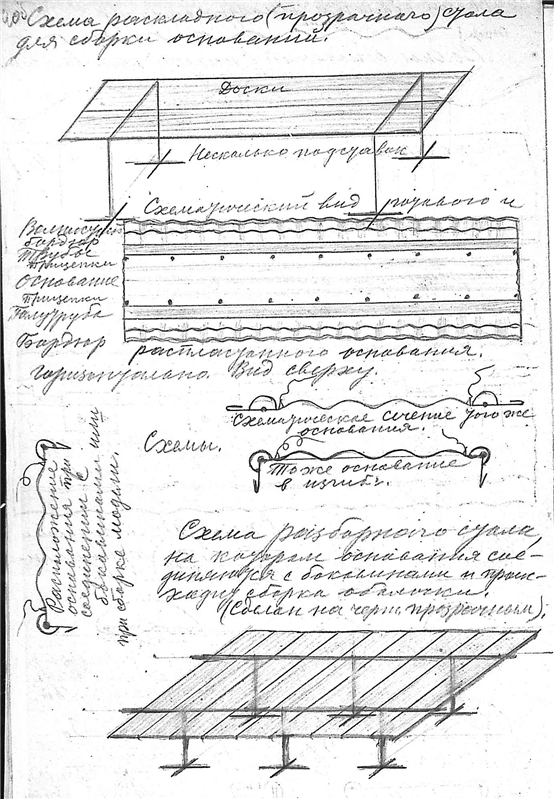 Схема раскладного (прозрачного) стола
для сборки оснований.
Доски
Несколько подставок
Схематический вид готового и
бордюр
Трубы
прищепки
Основание
прищепки
Полутруба
Бордюр
распластанного основания.
горизонтально. Вид сверху.
Схематическое сечение того же
основания.
Схемы.
Тоже основание
в изгибе.
Расположение
основания при
соединении с
боковинами или
при сборке модели.
Схема разборного стола,
на котором основания сое-
диняются с боковинами и проис-
ходит сборка оболочки.
(Сделан на черт. прозрачным).